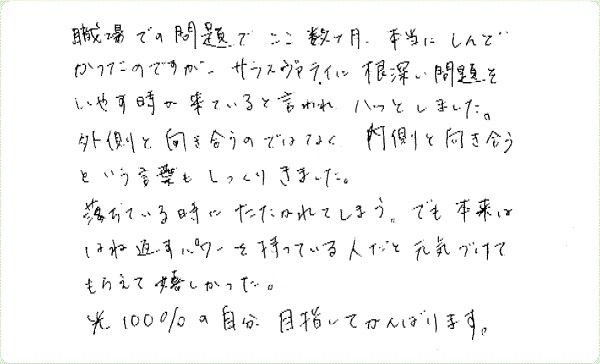 職場での問題でここ数ヶ月、本当にしんど
かったのですが、サラスヴァティに根深い問題を
いやす時が来ていると言われ、ハッとしました。
外側と向き合うのではなく、内側と向き合う
という言葉もしっくりきました。
落ちている時にたたかれてしまう。でも本来は
はね返すパワーを持っている人だと元気づけて
もらえて嬉しかった。
光100%の自分目指してがんばります。